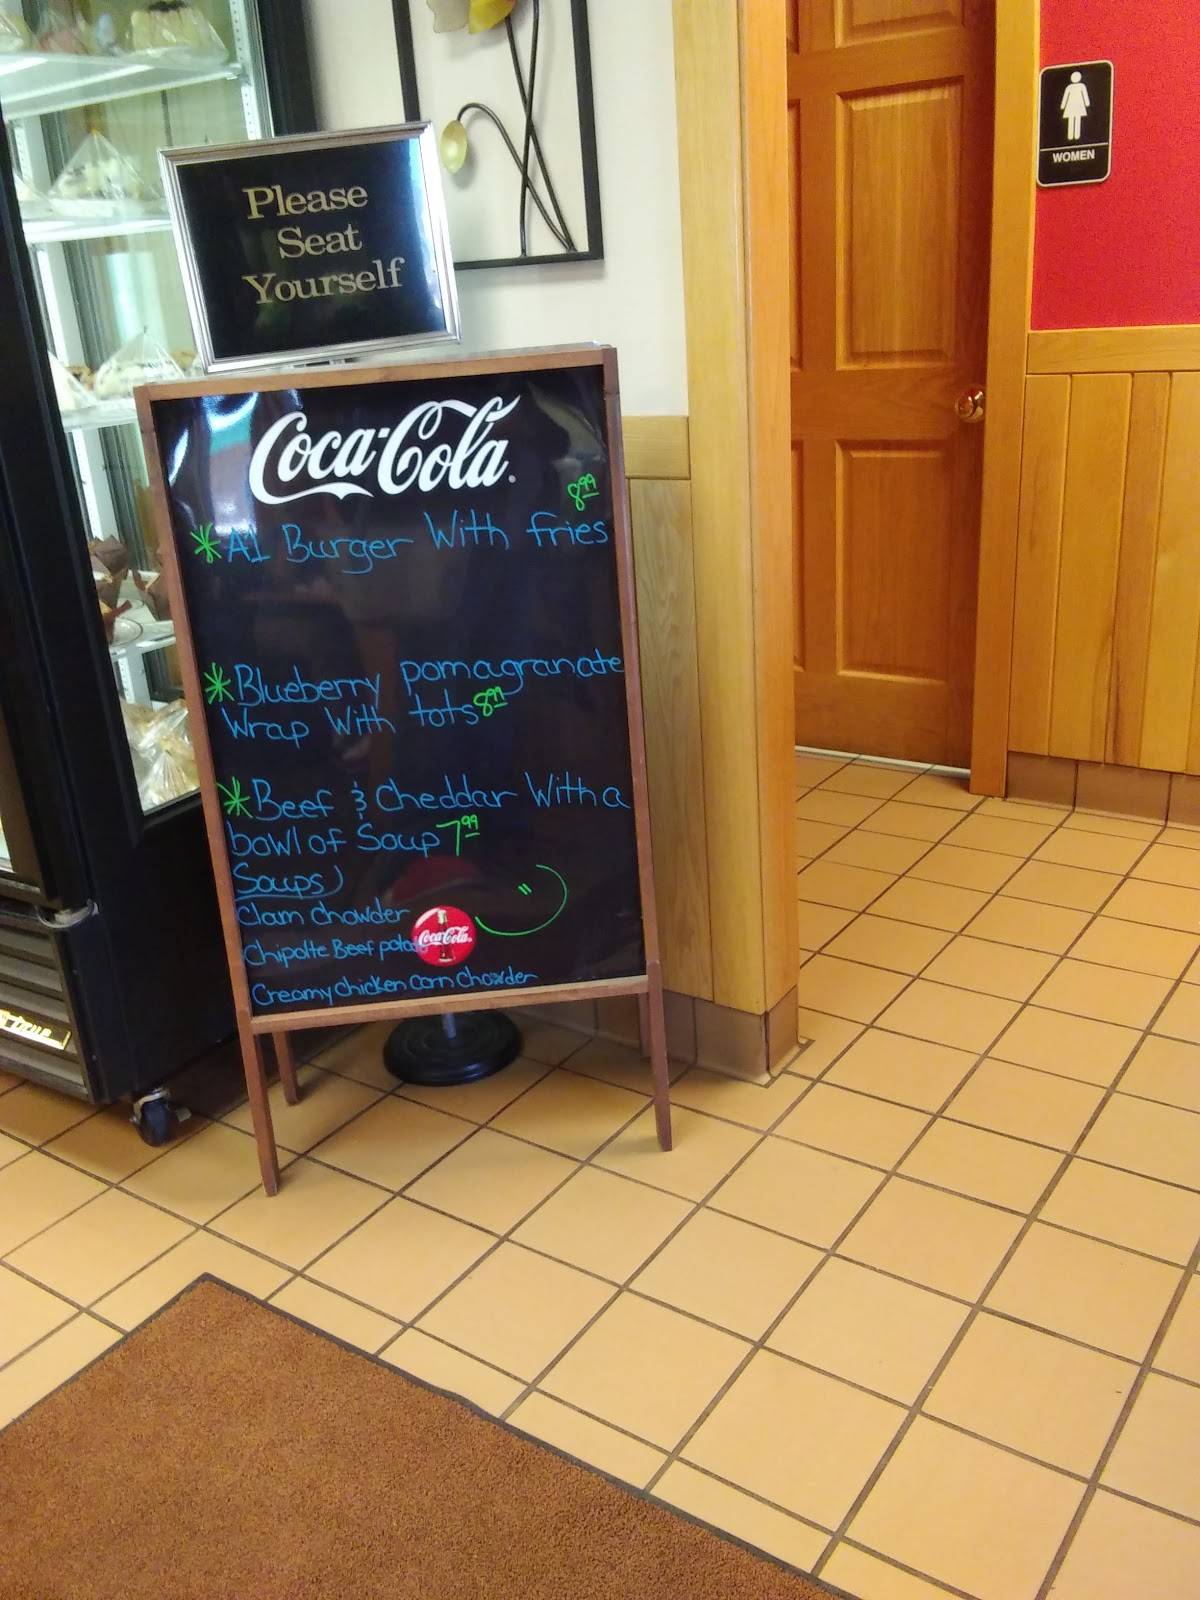 Please
Seat
Yourself
WOMEN
Coca-Cola
8.99
*A1 Burger With fries
*Blueberry pomagranate
Wrap With tots 8.99
*Beef & Cheddar With a
bowl of Soup 7.99
Soups)
Clam Chowder
Chipolte Beef potato
Coca-Cola
Creamy chicken corn chowder